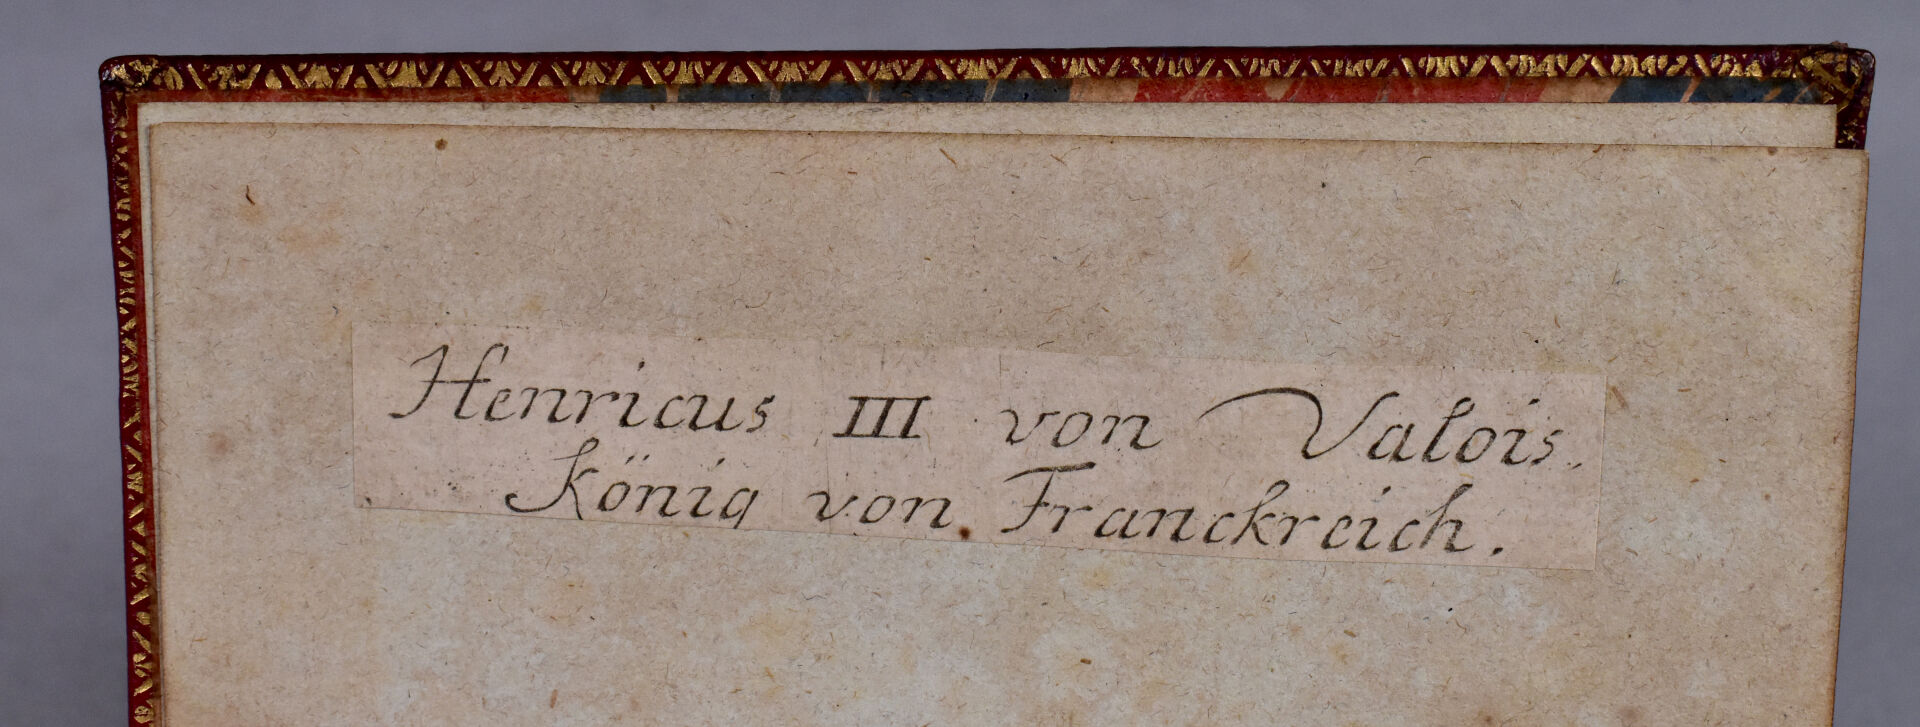 Henricus III von Valois.
König von Franckreich.